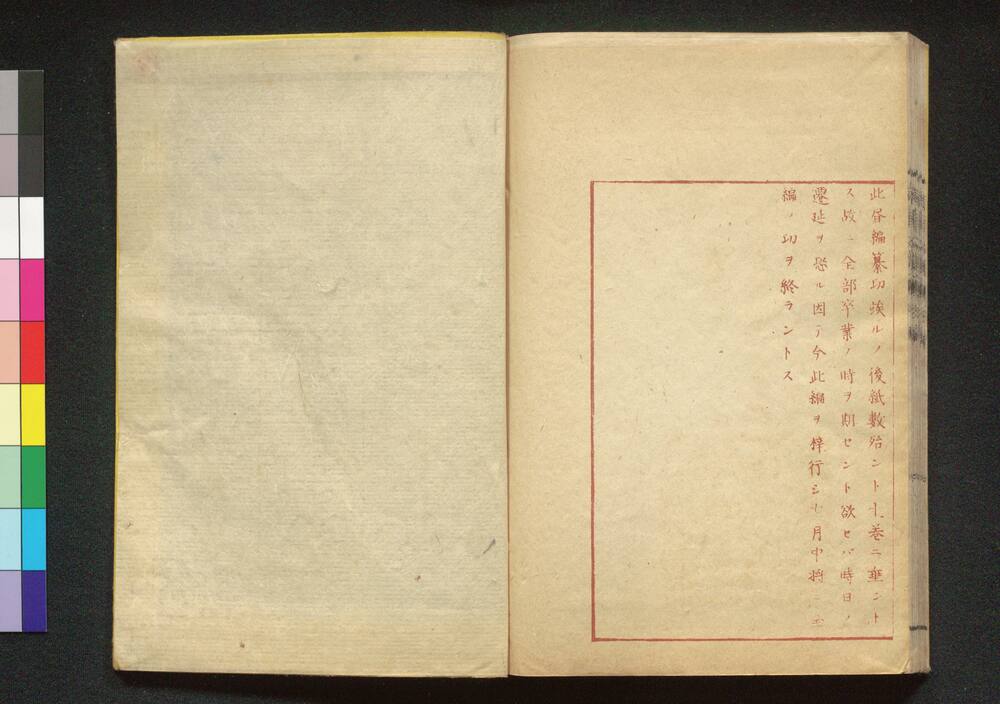 此書編纂功竣ルノ後紙数殆ント十巻ニ垂ント
ス故ニ全部卒業ノ時ヲ期セント欲セバ時日ノ
遷延ヲ恐ル因テ今此編ヲ梓行シ 月中将ニ
編ノ功ヲ終ラントス